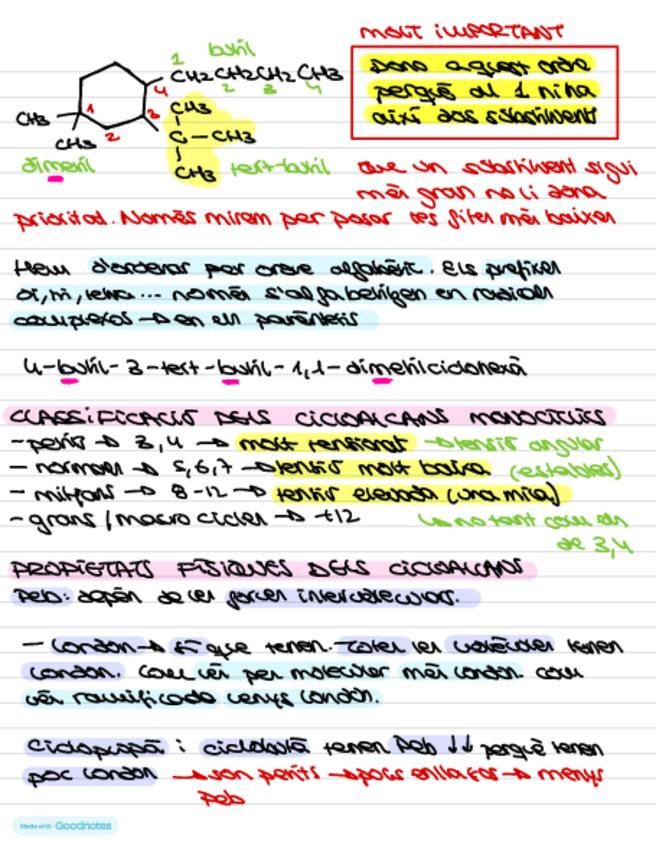 MOLT IMPORTANT
1 butil
CH2CH2CH2CH3
2 3 4
4
CH3
CH3
1
2
3
C-CH3
CH3
CH3
dimetil
tert-butil
Dona aquest ordre
perquè al 1 hi ha
així dos substituent
que un substituent sigui
més gran no li dona
prioritat. Només mirem per posar les xifres més baixes
Hem d'ordenar per ordre alfabètic. Els prefixes
di, tri, tetra... només s'alfabetitzen en radicals
complexos → en els parèntesis
4-butil-3-tert-butil-1,1-dimetilciclohexà
CLASSIFICACIÓ DELS CICLOALCANS MONOCÍCLICS
-petits → 3,4 → molt tensionat → tensió angular
- normals → 5,6,7 → tensió molt baixa (estables)
- mitjans → 8-12 → tensió elevada (una mica)
- grans / macro cicles → +12
↳ no tant com els
de 3,4
PROPIETATS FÍSIQUES DELS CICLOALCANS
Peb: depèn de les forces intermoleculars.
- London → sí que tenen. Totes les molècules tenen
London. Com més pes molecular més London. Com
més ramificada menys London.
Ciclopropà i ciclobutà tenen Peb ↓↓ perquè tenen
poc London → son petits → pocs enllaços → menys
Peb
Made with Goodnotes